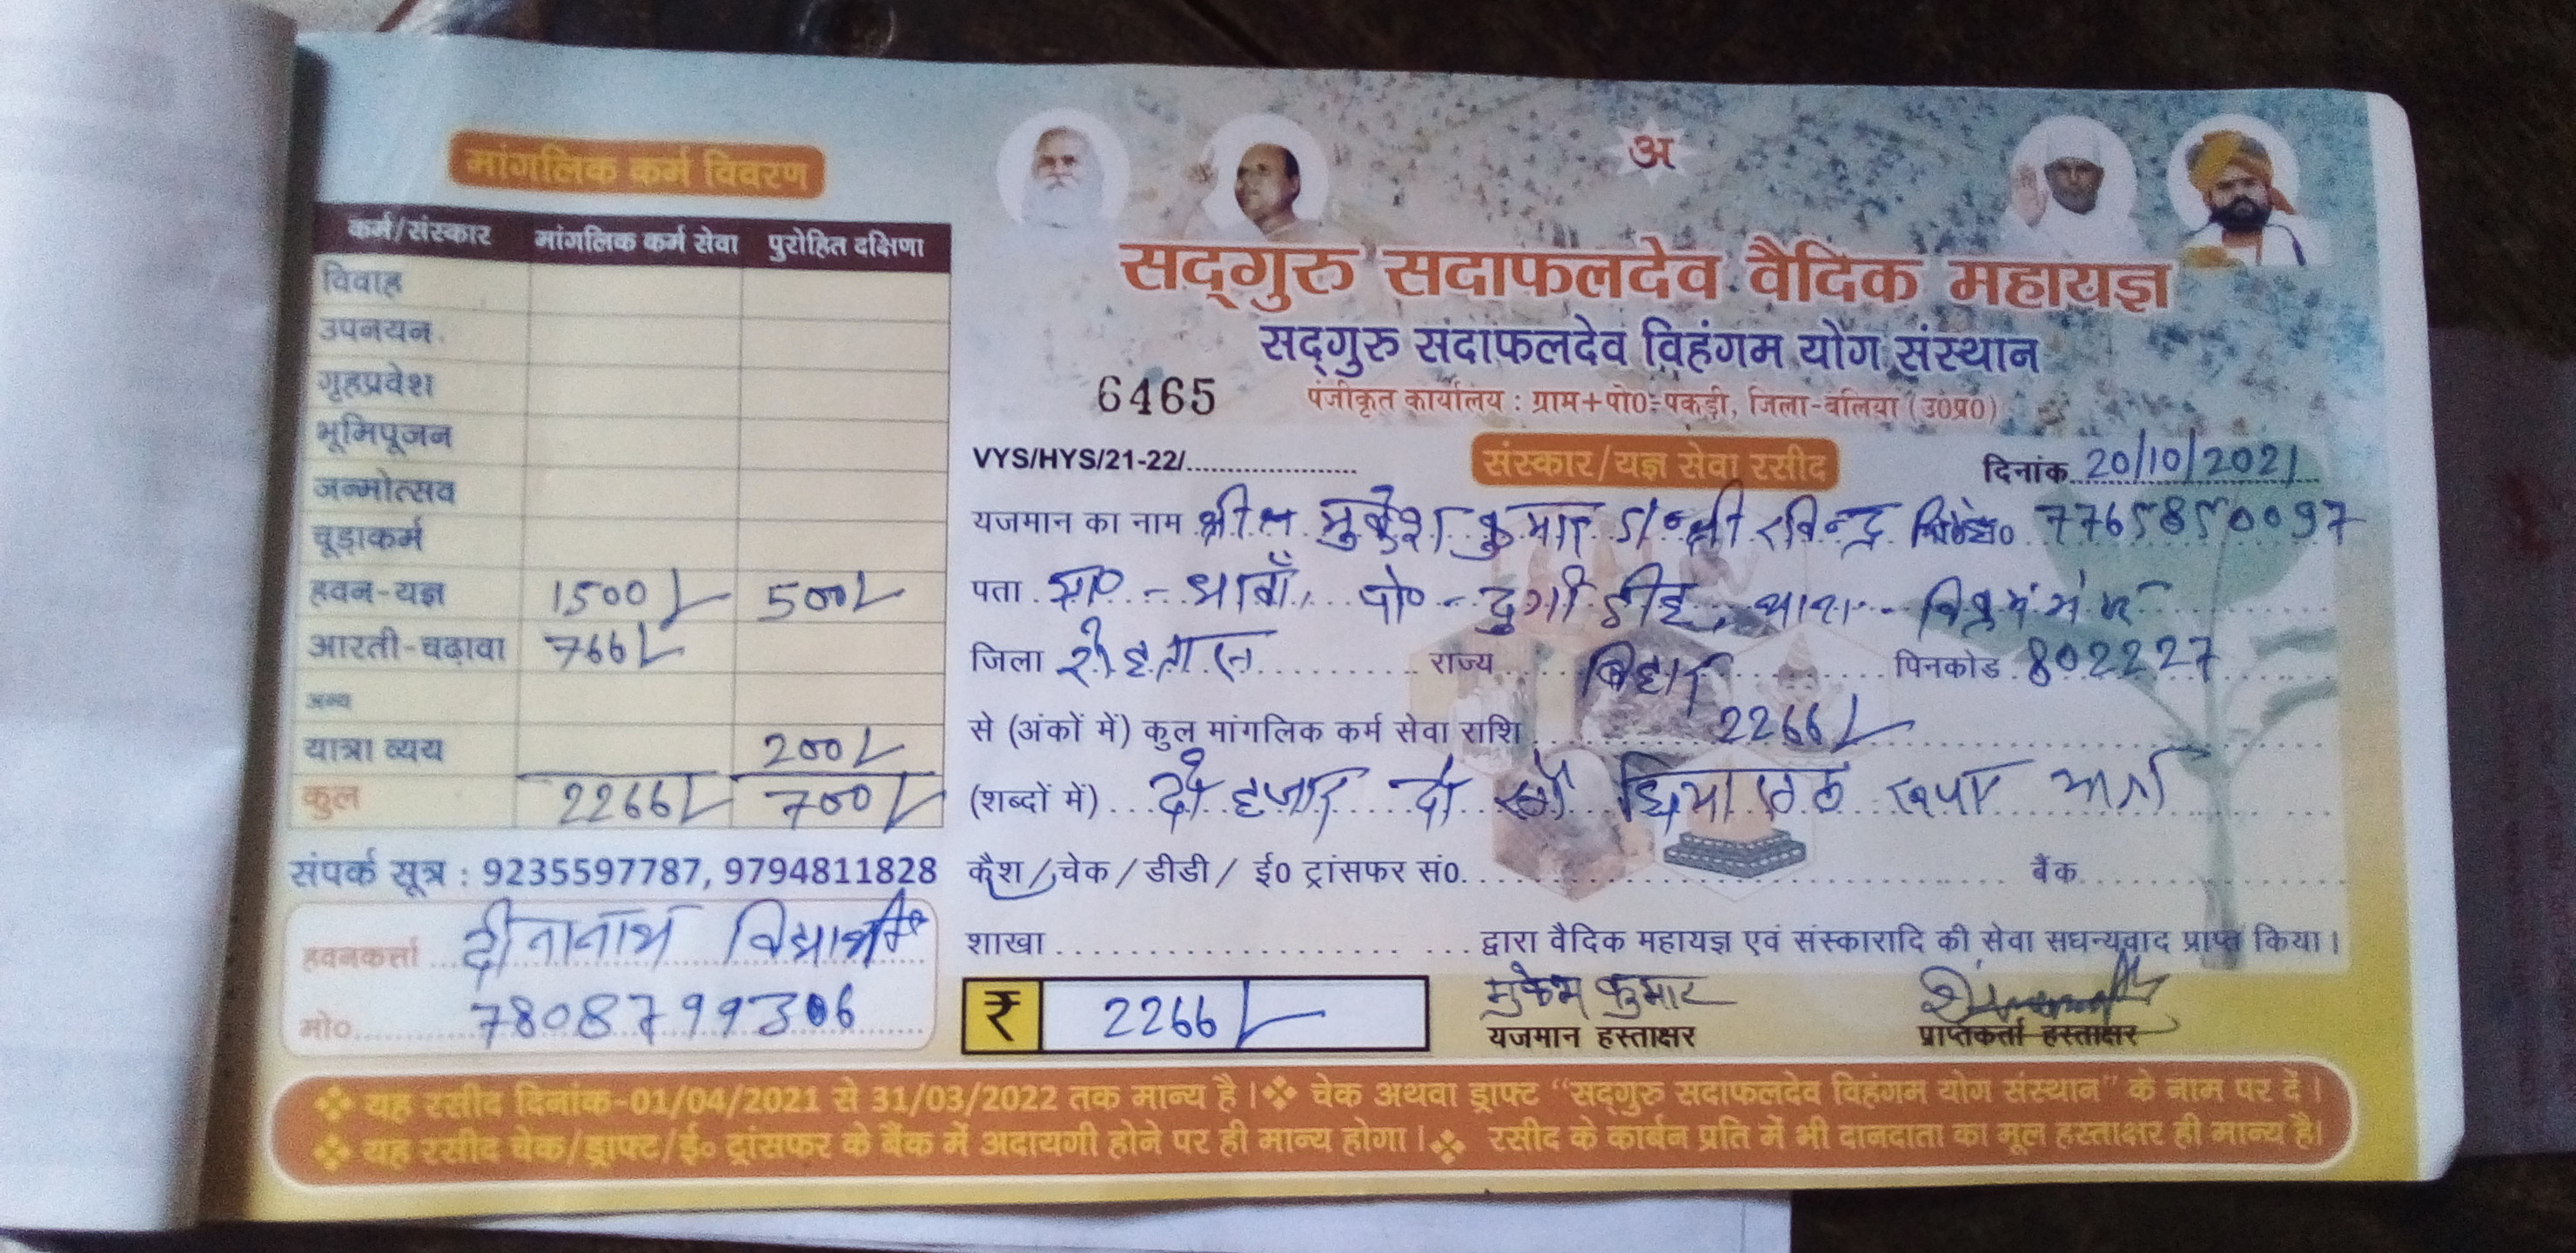 मांगलिक कर्म विवरण
कर्म/संस्कार मांगलिक कर्म सेवा पुरोहित दक्षिणा
विवाह
उपनयन
गृहप्रवेश
भूमिपूजन
जन्मोत्सव
चूड़ाकर्म
हवन-यज्ञ 1500/- 500/-
आरती-चढ़ावा 766/-
अन्य
यात्रा व्यय 200/-
कुल 2266/- 700/-
संपर्क सूत्र : 9235597787, 9794811828
हवनकर्त्ता दीनानाथ विद्यार्थी
मो० 7808799306
अ
सद्‌गुरु सदाफलदेव वैदिक महायज्ञ
सद्‌गुरु सदाफलदेव विहंगम योग संस्थान
6465 पंजीकृत कार्यालय : ग्राम+पो०-पकड़ी, जिला-बलिया (उ०प्र०)
VYS/HYS/21-22/ संस्कार/यज्ञ सेवा रसीद दिनांक 20/10/2021
यजमान का नाम मुकेश कुमार श्री रविन्द्र 7765850097
पता पो०-दुर्गा डीह, थाना-
जिला रोहतास राज्य बिहार पिनकोड 802227
से (अंकों में) कुल मांगलिक कर्म सेवा राशि 2266/-
(शब्दों में) दो हजार दो सौ छियासठ रूपया मात्र
कैश/चेक/डीडी/ ई० ट्रांसफर सं० बैंक
शाखा द्वारा वैदिक महायज्ञ एवं संस्कारादि की सेवा सधन्यवाद प्राप्त किया।
₹ 2266/- मुकेश कुमार
यजमान हस्ताक्षर प्राप्तकर्त्ता हस्ताक्षर
❖ यह रसीद दिनांक-01/04/2021 से 31/03/2022 तक मान्य है।❖ चेक अथवा ड्राफ्ट "सद्‌गुरु सदाफलदेव विहंगम योग संस्थान" के नाम पर दें।
❖ यह रसीद चेक/ड्राफ्ट/ई० ट्रांसफर के बैंक में अदायगी होने पर ही मान्य होगा।❖ रसीद के कार्बन प्रति में भी दानदाता का मूल हस्ताक्षर ही मान्य है।